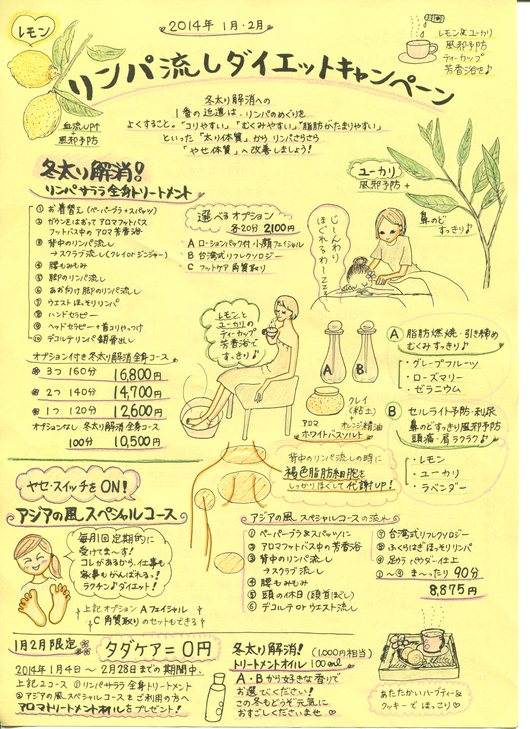 レモン
2014年 1月・2月
レモン&ユーカリ
風邪予防
ティーカップ
芳香浴を♪
リンパ流しダイエットキャンペーン
血流UP↑
+
風邪予防
冬太り解消への
1番の近道は、リンパのめぐりを
よくすること。「コリやすい」「むくみやすい」「脂肪がたまりやすい」
といった「太り体質」からリンパさらさら
「やせ体質」へ改善しましょう!
冬太り解消!!
リンパサララ全身トリートメント
① お着替え(ペーパーブラ+スパッツ)
② ガウンをはおってアロマフットバス
フットバス中のアロマ芳香浴
③ 背中のリンパ流し
→スクラブ流し(クレイorジンジャー)
④ 腰もみもみ
⑤ 脚Pのリンパ流し
⑥ あお向け脚Pのリンパ流し
⑦ ウエストほっそりリンパ
⑧ ハンドセラピー
⑨ ヘッドセラピー+首コリやっつけ
⑩ デコルテリンパ鎖骨出し
オプション付き冬太り解消全身コース
3つ 160分 16,800円
2つ 140分 14,700円
1つ 120分 12,600円
オプションなし 冬太り解消全身コース
100分 10,500円
選べるオプション
各20分 2100円
A ローションパック付小顔フェイシャル
B 台湾式リフレクソロジー
C フットケア角質取り
ユーカリ
風邪予防+
鼻のど
すっきり♪
じ〜んわり
ほぐれるわ〜
レモンと
ユーカリの
ティーカップ
芳香浴で
すっきり♪
A
B
クレイ
(粘土)
+
オレンジ精油
アロマ
ホワイトバスソルト
Ⓐ 脂肪燃焼・引き締め
むくみすっきり♪
・グレープフルーツ
・ローズマリー
・ゼラニウム
Ⓑ セルライト予防・利尿
鼻のどすっきり風邪予防
頭痛・肩ラクラク♪
・レモン
・ユーカリ
・ラベンダー
背中のリンパ流しの時に
褐色脂肪細胞を
しっかりほぐして代謝UP!
ヤセ・スイッチをON!
アジアの風スペシャルコース
毎月1回定期的に
受けてま〜す!
コレがあるから、仕事も
家事もがんばれるっ!
ラクチン♪ダイエット!
上記オプションAフェイシャル
C角質取りのセットもできる
アジアの風スペシャルコースの流れ
① ペーパーブラ&スパッツに
② アロマフットバス中の芳香浴
③ 背中のリンパ流し
→スクラブ流し
④ 腰もみもみ
⑤ 頭の休日(頭首ほぐし)
⑥ デコルテorウエスト流し
⑦ 台湾式リフレクソロジー
⑧ ふくらはぎほっそりリンパ
⑨ 足うらパウダー仕上
①〜⑨ ま〜ったり90分
8,875円
1月2月限定
タダケア=0円
2014年1月4日〜2月28日までの期間中、
上記2コース ①リンパサララ全身トリートメント
②アジアの風スペシャルコースをご利用の方へ
アロマトリートメントオイルをプレゼント!
冬太り解消!(1,000円相当)
トリートメントオイル100ml
A・Bから好きな香りで
お選びください!
この冬もどうぞ元気に
おすごしくださいませ♡
あたたかいハーブティー&
クッキーでほっこり♡